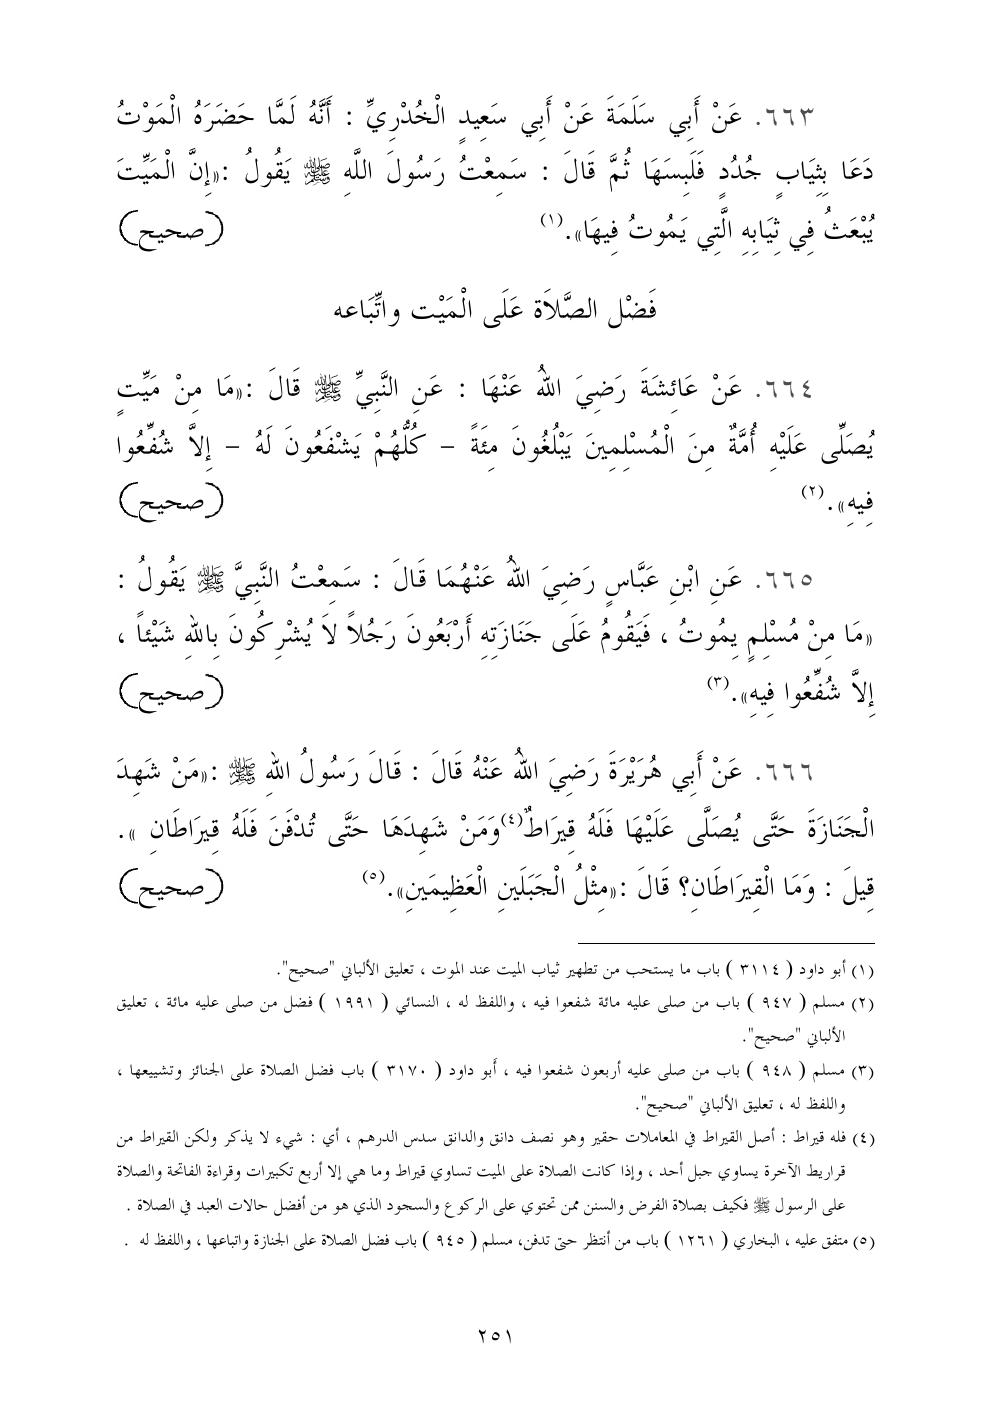 ٦٦٣. عَنْ أَبِي سَلَمَةَ عَنْ أَبِي سَعِيدٍ الْخُدْرِيِّ : أَنَّهُ لَمَّا حَضَرَهُ الْمَوْتُ
دَعَا بِثِيَابٍ جُدُدٍ فَلَبِسَهَا ثُمَّ قَالَ : سَمِعْتُ رَسُولَ اللَّهِ ﷺ يَقُولُ :«إِنَّ الْمَيِّتَ
يُبْعَثُ فِي ثِيَابِهِ الَّتِي يَمُوتُ فِيهَا».(١) (صحيح)
فَضْل الصَّلاَة عَلَى الْمَيْت واتِّبَاعه
٦٦٤. عَنْ عَائِشَةَ رَضِيَ اللهُ عَنْهَا : عَنِ النَّبِيِّ ﷺ قَالَ :«مَا مِنْ مَيِّتٍ
يُصَلِّى عَلَيْهِ أُمَّةٌ مِنَ الْمُسْلِمِينَ يَبْلُغُونَ مِئَةً – كُلُّهُمْ يَشْفَعُونَ لَهُ – إِلاَّ شُفِّعُوا
فِيهِ».(٢) (صحيح)
٦٦٥. عَنِ ابْنِ عَبَّاسٍ رَضِيَ اللهُ عَنْهُمَا قَالَ : سَمِعْتُ النَّبِيَّ ﷺ يَقُولُ :
«مَا مِنْ مُسْلِمٍ يِمُوتُ ، فَيَقُومُ عَلَى جَنَازَتِهِ أَرْبَعُونَ رَجُلاً لاَ يُشْرِكُونَ بِاللهِ شَيْئاً ،
إِلاَّ شُفِّعُوا فِيهِ».(٣) (صحيح)
٦٦٦. عَنْ أَبِي هُرَيْرَةَ رَضِيَ اللهُ عَنْهُ قَالَ : قَالَ رَسُولُ اللهِ ﷺ :«مَنْ شَهِدَ
الْجَنَازَةَ حَتَّى يُصَلَّى عَلَيْهَا فَلَهُ قِيرَاطٌ(٤)وَمَنْ شَهِدَهَا حَتَّى تُدْفَنَ فَلَهُ قِيرَاطَانِ ».
قِيلَ : وَمَا الْقِيرَاطَانِ؟ قَالَ :«مِثْلُ الْجَبَلَينِ الْعَظِيمَينِ».(٥) (صحيح)
(١) أبو داود ( ٣١١٤ ) باب ما يستحب من تطهير ثياب الميت عند الموت ، تعليق الألباني "صحيح".
(٢) مسلم ( ٩٤٧ ) باب من صلى عليه مائة شفعوا فيه ، واللفظ له ، النسائي ( ١٩٩١ ) فضل من صلى عليه مائة ، تعليق
الألباني "صحيح".
(٣) مسلم ( ٩٤٨ ) باب من صلى عليه أربعون شفعوا فيه ، أَبو داود ( ٣١٧٠ ) باب فضل الصلاة على الجنائز وتشييعها ،
واللفظ له ، تعليق الألباني "صحيح".
(٤) فله قيراط : أصل القيراط في المعاملات حقير وهو نصف دانق والدانق سدس الدرهم ، أي : شيء لا يذكر ولكن القيراط من
قراريط الآخرة يساوي جبل أحد ، وإذا كانت الصلاة على الميت تساوي قيراط وما هي إلا أربع تكبيرات وقراءة الفاتحة والصلاة
على الرسول ﷺ فكيف بصلاة الفرض والسنن ممن تحتوي على الركوع والسجود الذي هو من أفضل حالات العبد في الصلاة .
(٥) متفق عليه ، البخاري ( ١٢٦١ ) باب من أنتظر حتى تدفن، مسلم ( ٩٤٥ ) باب فضل الصلاة على الجنازة واتباعها ، واللفظ له .
٢٥١